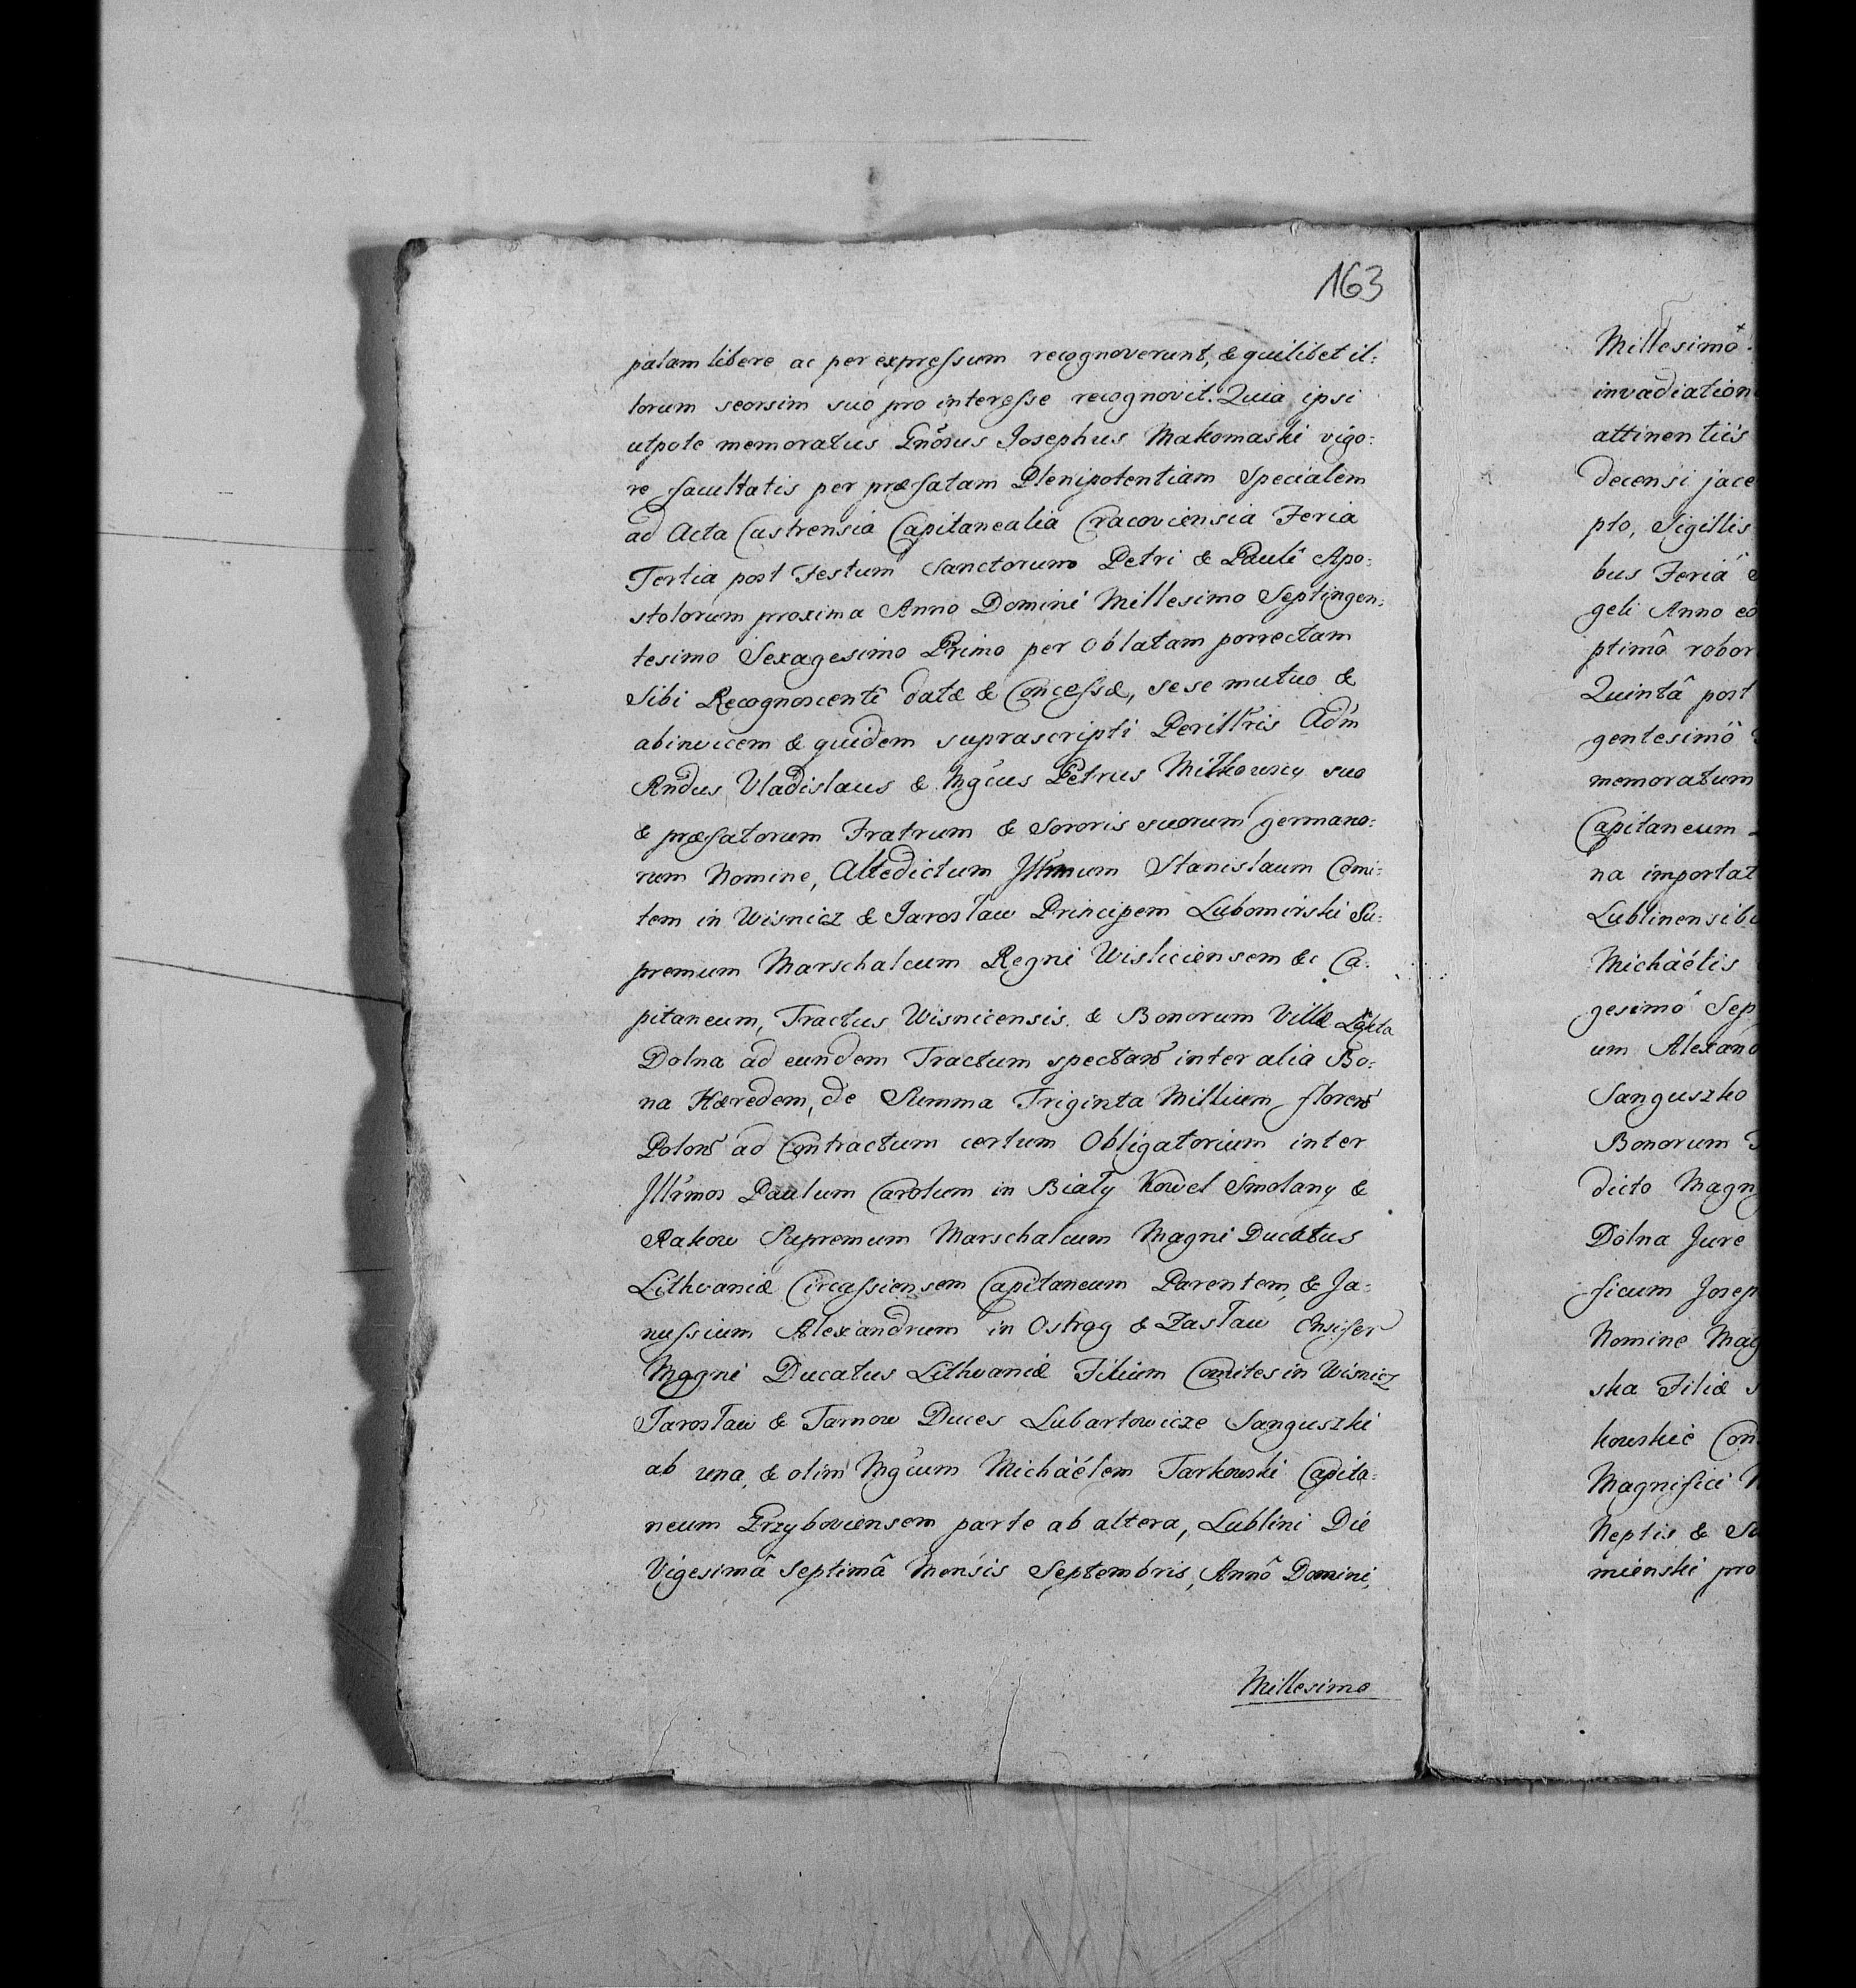 163
palam libere ac per expressum recognoverunt, & quilibet il:
lorum seorsim suo pro interesse recognovit. Quia ipsi
utpote memoratus Gnõsus Josephus Makomaski vigo:
re facultatis per præfatam Plenipotentiam Specialem
ad Acta Castrensia Capitanealia Cracoviensia Feria
Tertia post Festum Sanctorum Petri & Pauli Apo:
stolorum proxima Anno Domini Millesimo Septingen:
tesimo Sexagesimo Primo per Oblatam porrectam
Sibi Recognoscenti datæ & Concessæ, sese mutuo &
abinvicem & quidem suprascripti Perillris Adm
Rndus Vladislaus & Mgcus Petrus Milkowscy suo
& præfatorum Fratrum & Sororis suorum germano:
rum Nomine, Altedictum Illmum Stanislaum Comi:
tem in Wisnicz & Jaroslaw Principem Lubomirski Su:
premum Marschalcum Regni Wisliciensem &c Ca:
pitaneum, Tractus Wisnicensis & Bonorum Villæ Łąkta
Dolna ad eundem Tractum spectan inter alia Bo:
na Hæredem, de Summa Triginta Millium floren
Polon ad Contractum certum Obligatorium inter
Illrmos Paulum Carolum in Biały Kowel Smolany &
Rakow Supremum Marschalcum Magni Ducatus
Lithvaniæ Circassiensem Capitaneum Parentem, & Ja:
nussium Alexandrum in Ostrog & Zasław Ensifer
Magni Ducatus Lithvaniæ Filium Comites in Wisnicz
Jarosław & Tarnow Duces Lubartowicze Sanguszki
ab una, & olim Mgcum Michaëlem Tarkowski Capita:
neum Grzyboviensem parte ab altera, Lublini Die
Vigesimâ Septimâ Mensis Septembris, Annô Domini,
Millesimo
Millesimô
invadiation
attinentiis
decensi jace
pto, Sigillis
bus Feriâ
geli Anno eo
ptimô robor
Quintâ post
gentesimô
memoratum
Capitaneum
na importat
Lublinensib
Michaëlis
gesimo Sep
um Alexand
Sanguszko
Bonorum
dicto Magn
Dolna Jure
ficum Josep
Nomine Mag
ska Filiæ
kowskie Con
Magnifici
Neptis & Su
mienski pro